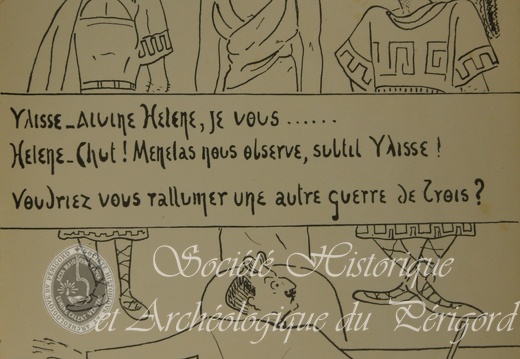 Ylisse_Divine Helene, je vous ......
Helene_Chut! Menelas nous observe, subtil Ylisse!
Voudriez vous rallumer une autre guerre de Trois?
Société Historique
et Archéologique du Périgord